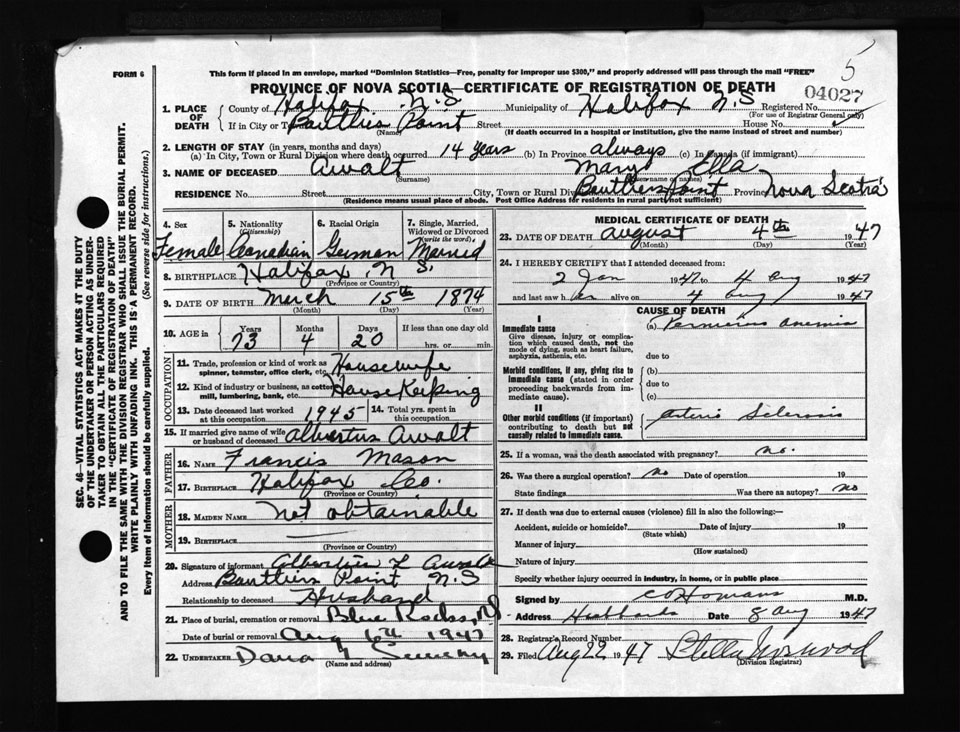 5
FORM 6
This form if placed in an envelope, marked "Dominion Statistics—Free, penalty for improper use $300," and properly addressed will pass through the mail "FREE"
PROVINCE OF NOVA SCOTIA—CERTIFICATE OF REGISTRATION OF DEATH
04027
1. PLACE OF DEATH
County of Halifax N.S. Municipality of Halifax N.S Registered No.
(For use of Registrar General only)
If in City or Town Point Street House No.
(Name) (If death occurred in a hospital or institution, give the name instead of street and number)
2. LENGTH OF STAY (in years, months and days)
(a) In City, Town or Rural Division where death occurred 14 years (b) In Province always (c) In Canada (if immigrant)
3. NAME OF DECEASED Awalt Mary Ella
(Surname)
RESIDENCE No. Street City, Town or Rural Point Province Nova Scotia
(Residence means usual place of abode. Post Office Address for residents in rural parts not sufficient)
4. Sex 5. Nationality (Citizenship) 6. Racial Origin 7. Single, Married, Widowed or Divorced (write the word)
Female Canadian German Married
8. BIRTHPLACE Halifax N.S.
(Province or Country)
9. DATE OF BIRTH March 15th 1874
(Month) (Day) (Year)
10. AGE in Years Months Days If less than one day
73 4 20 hrs. or min.
OCCUPATION
11. Trade, profession or kind of work as spinner, teamster, office clerk, etc. Housewife
12. Kind of industry or business, as cotton mill, lumbering, bank, etc. House Keeping
13. Date deceased last worked at this occupation 1945 14. Total yrs. spent in this occupation
15. If married give name of wife or husband of deceased Albertus Awalt
FATHER
16. NAME Francis Mason
17. BIRTHPLACE Halifax Co.
(Province or Country)
MOTHER
18. MAIDEN NAME Not obtainable
19. BIRTHPLACE
(Province or Country)
20. Signature of informant Albertus L Awalt
Address Point N.S
Relationship to deceased Husband
21. Place of burial, cremation or removal Blue Rocks, NS
Date of burial or removal Aug 6th 1947
22. UNDERTAKER Dana
(Name and address)
MEDICAL CERTIFICATE OF DEATH
23. DATE OF DEATH August 4th 1947
(Month) (Day) (Year)
24. I HEREBY CERTIFY that I attended deceased from:
2 Jan 1947 to 4 Aug 1947
and last saw her alive on 4 Aug 1947
CAUSE OF DEATH
I
Immediate cause (a) Pernicious anemia
Give disease, injury or complication which caused death, not the mode of dying, such as heart failure, asphyxia, asthenia, etc. due to
Morbid conditions, if any, giving rise to immediate cause (stated in order proceeding backwards from immediate cause). (b)
due to
(c)
II
Other morbid conditions (if important) contributing to death but not causally related to immediate cause. Arterio Sclerosis
25. If a woman, was the death associated with pregnancy? no.
26. Was there a surgical operation? no Date of operation 19
State findings Was there an autopsy? no
27. If death was due to external causes (violence) fill in also the following:—
Accident, suicide or homicide? Date of injury 19
(State which)
Manner of injury
(How sustained)
Nature of injury
Specify whether injury occurred in industry, in home, or in public place
Signed by C O Homans M.D.
Address Hubbards Date 8 Aug 1947
28. Registrar's Record Number
29. Filed Aug 22 1947 Stella Norwood
(Division Registrar)
SEC. 46—VITAL STATISTICS ACT MAKES IT THE DUTY
OF THE UNDERTAKER OR PERSON ACTING AS UNDERTAKER TO OBTAIN ALL THE PARTICULARS REQUIRED
IN THE "CERTIFICATE OF REGISTRATION OF DEATH"
AND TO FILE THE SAME WITH THE DIVISION REGISTRAR WHO SHALL ISSUE THE BURIAL PERMIT.
WRITE PLAINLY WITH UNFADING INK. THIS IS A PERMANENT RECORD.
Every item of information should be carefully supplied. (See reverse side for instructions.)